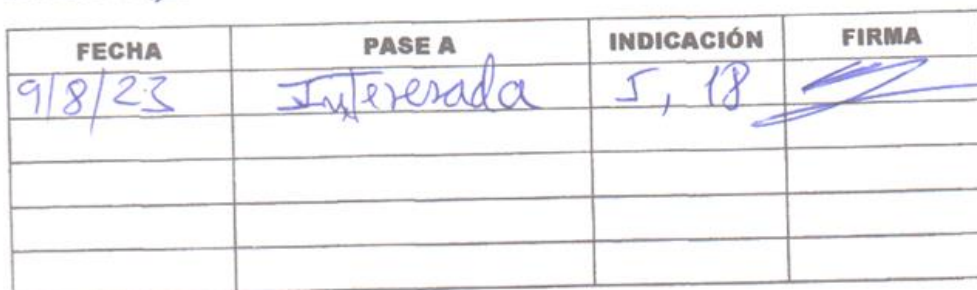 FECHA PASE A INDICACIÓN FIRMA
9/8/23 Interesada 5, 18